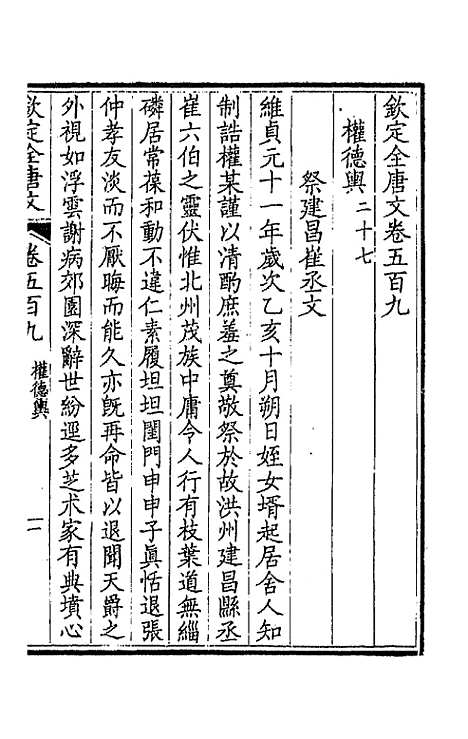 欽定全唐文卷五百九
權德輿二十七
祭建昌崔丞文
維貞元十一年歲次乙亥十月朔日姪女壻起居舍人知
制誥權某謹以清酌庶羞之奠敬祭於故洪州建昌縣丞
崔六伯之靈伏惟北州茂族中庸令人行有枝葉道無緇
磷居常葆和動不違仁素履坦坦閨門申申子眞恬退張
仲孝友淡而不厭晦而能久亦旣再命皆以退聞天爵之
外視如浮雲謝病郊園深辭世紛逕多芝术家有典墳心
欽定全唐文
卷五百九
權德輿
一